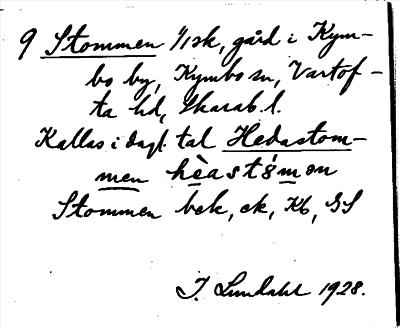 9 Stommen 1/1 sk, gård i Kym-
bo by, Kymbo sn, Vartof-
ta hd, Skarab. l.
Kallas i dagl. tal Hedastom-
men hèastȣ́mən
Stommen bek, ek, Kb, GS
I. Lundahl 1928.